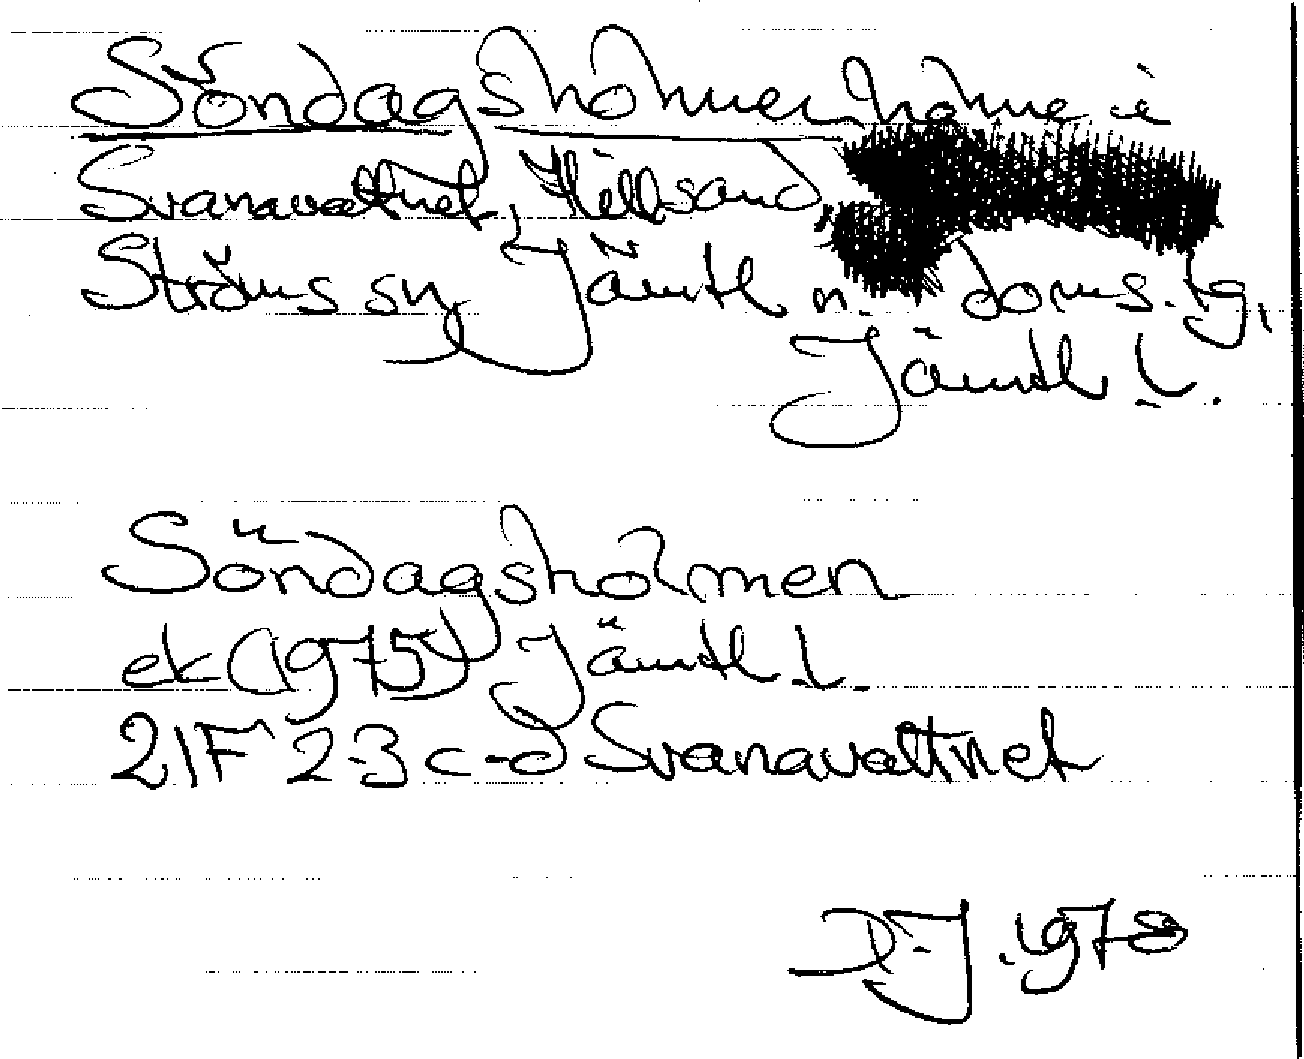 Söndagsholmen holme i
Svanavattnet, Hillsand,
Ströms sn, Jämtl n. doms.lg,
Jämtl l.
Söndagsholmen
ek (1975) Jämtl l.
21F 2-3 c-d Svanavattnet
D-J. 1978